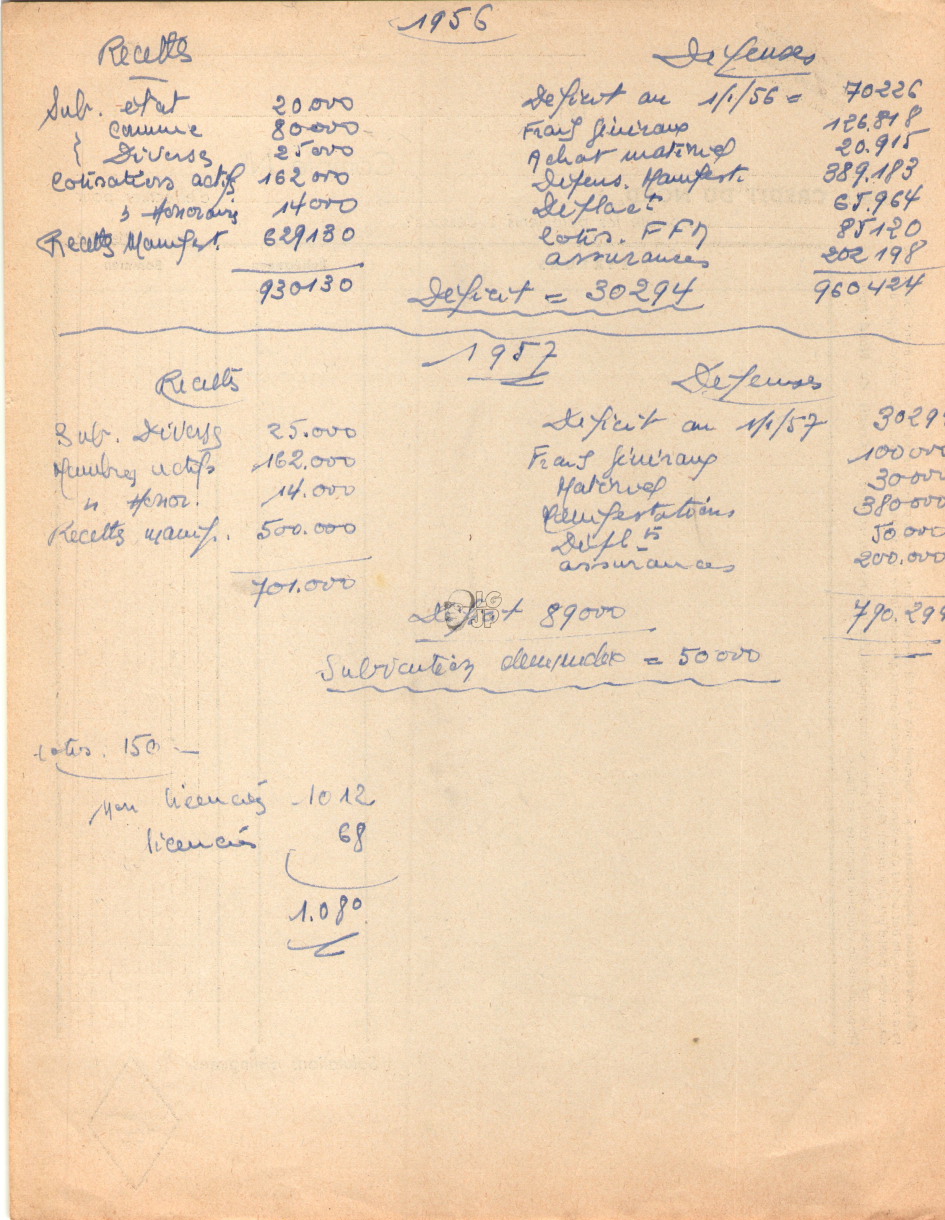 1956
Recettes Dépenses
Sub. etat 20000 Deficit au 1/1/56 = 70226
} Commune 80000 Frais Généraux 126.818
} Diverses 25000 Achat matériel 20.915
Cotisations actifs 162000 Dépens. Manifest. 389.183
" Honoraires 14000 Déplact 65.964
Recettes Manifest. 629130 Cotis. FFN 85120
assurances 202198
930130 Déficit = 30294 960424
1957
Recettes Dépenses
Sub. Diverses 25.000 Déficit au 1/1/57 3029
Membres actifs 162.000 Frais Généraux 100000
" Honor. 14.000 Matériel 30000
Recettes manif. 500.000 Manifestations 380000
Dépl ts 50000
assurances 200.000
701.000
Déficit 89000 790.294
LG
JP
Subvention demandée = 50000
cotis. 150 —
non licenciés 1012
licenciés 68
1.080